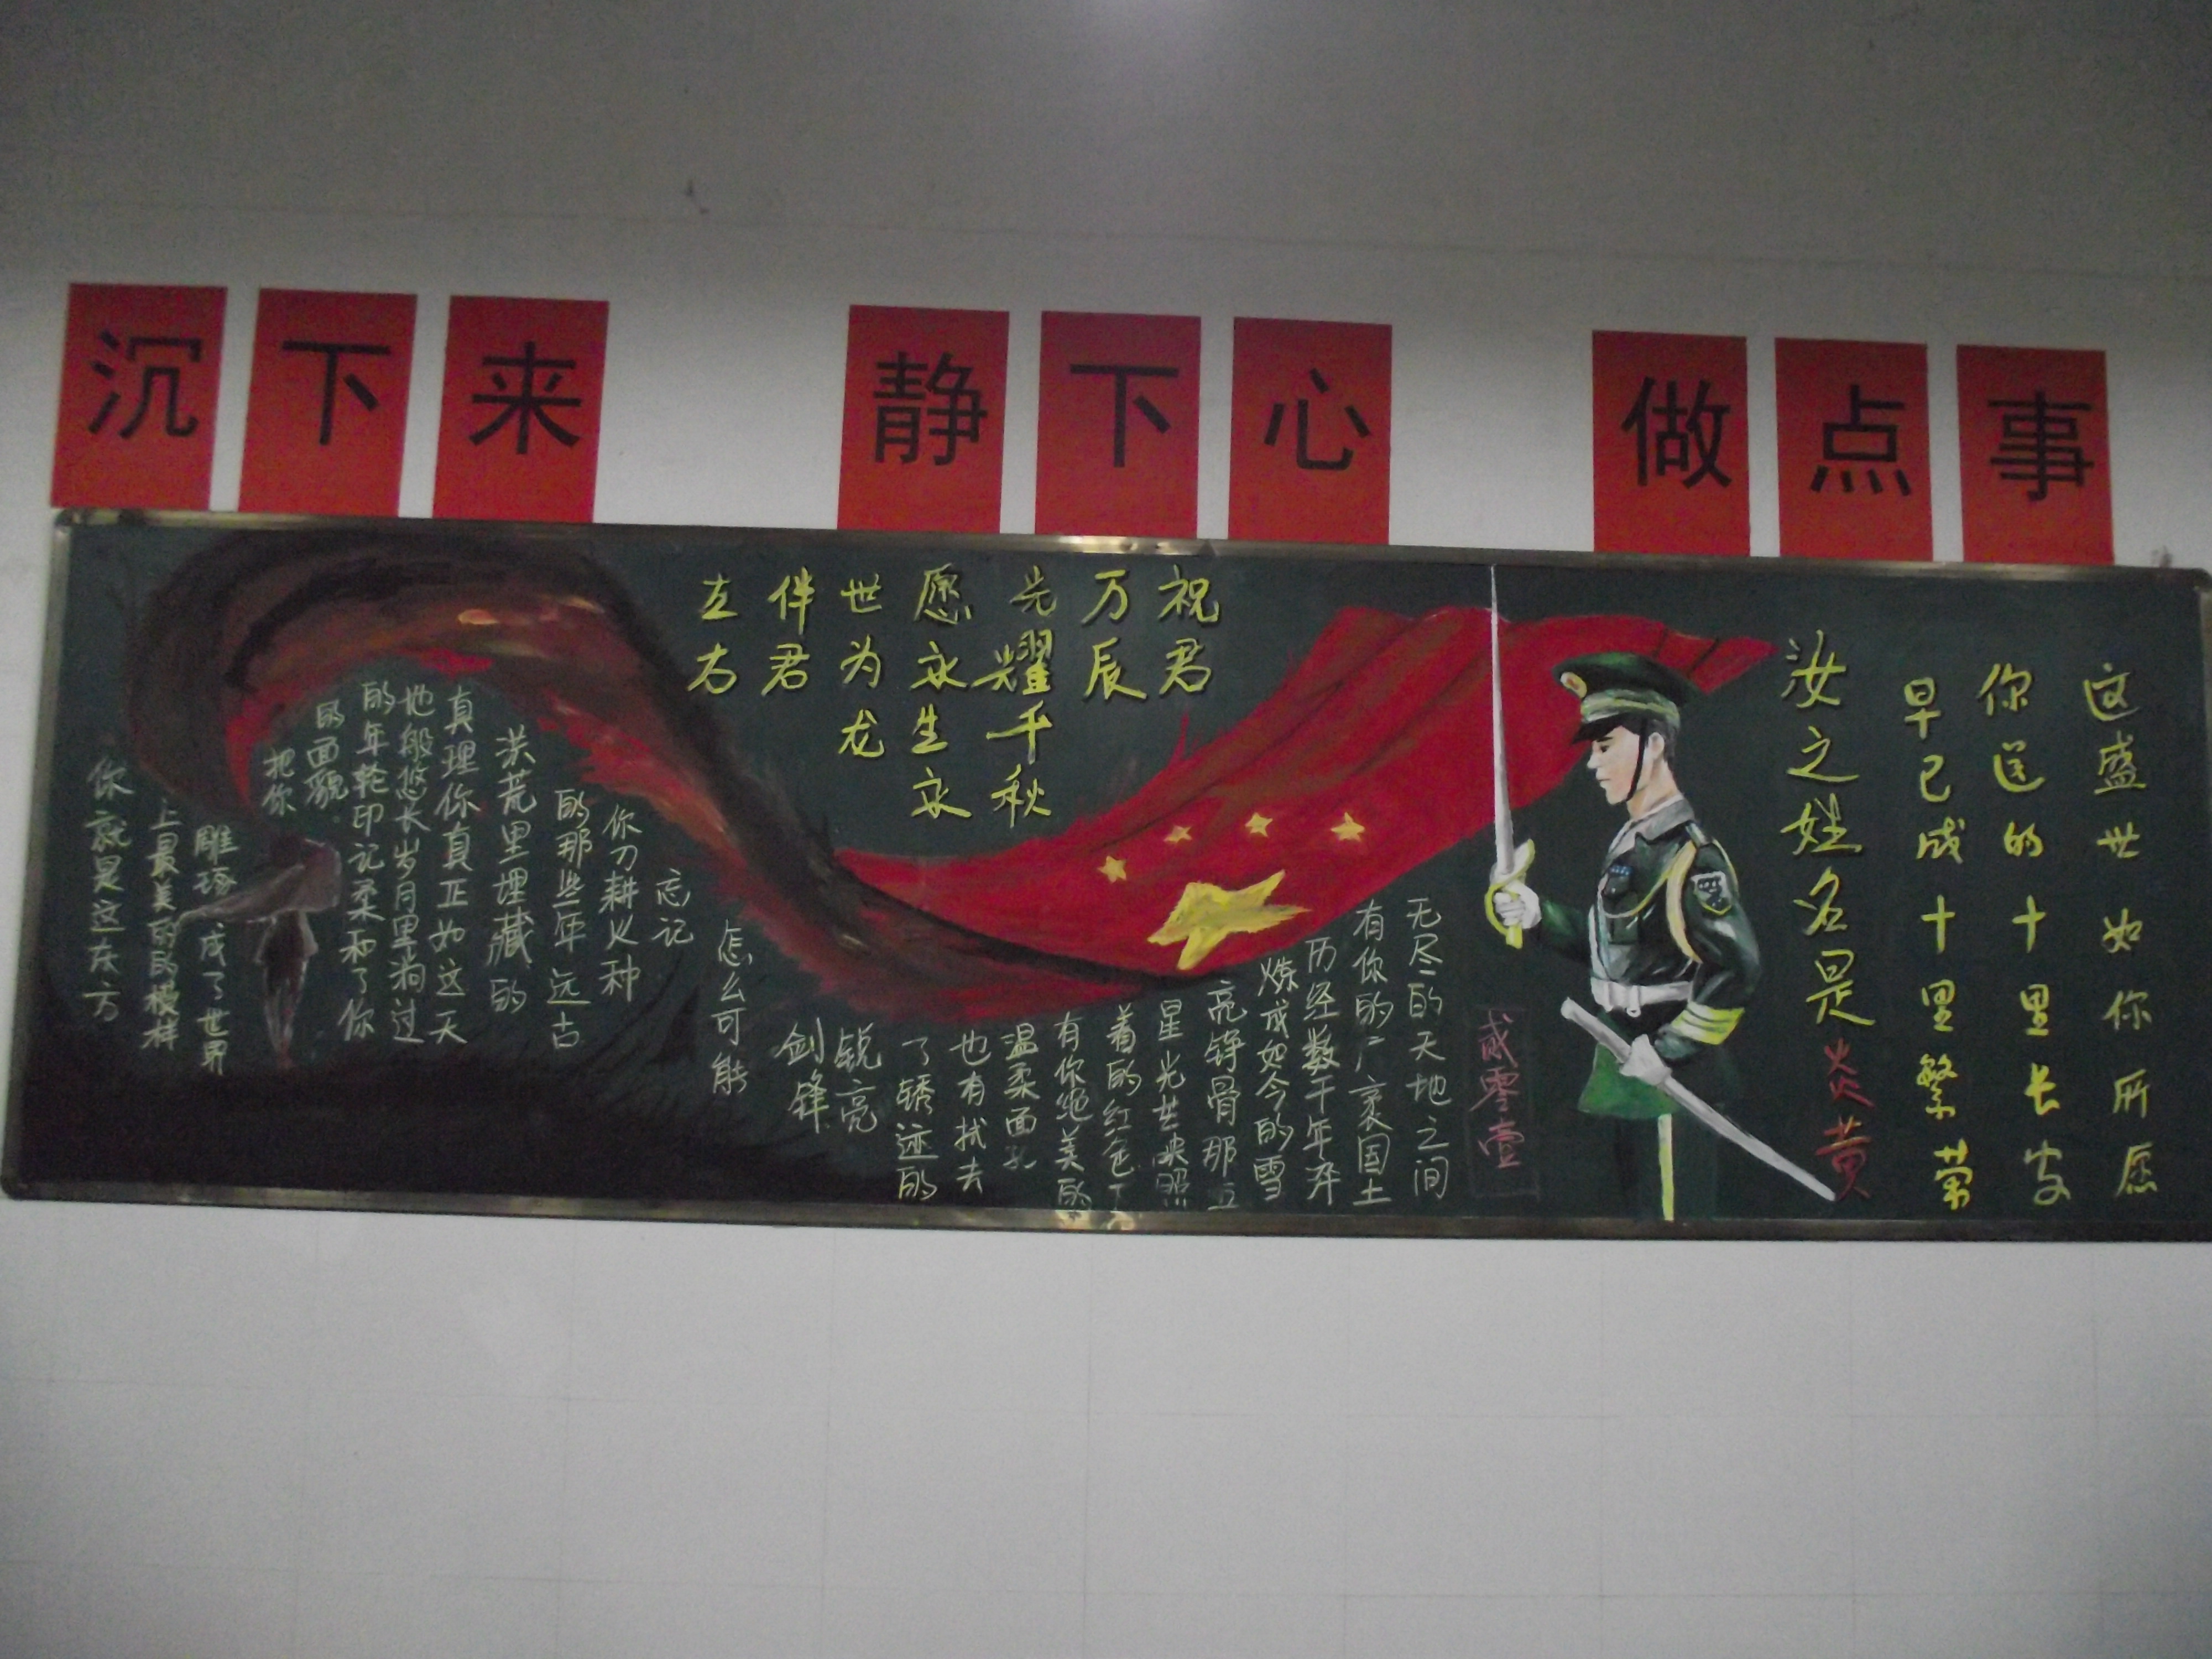 沉下来 静下心 做点事
这盛世如你所愿
你送的十里长安
早已成十里繁荣
汝之姓名是炎黄
贰零壹
祝君
万辰
光耀千秋
愿永生永
世为龙
伴君
左右
无尽的天地之间
有你的广袤国土
历经数千年淬
炼成如今的雪
亮铮骨那五
星光芒映照
着的红色
有你绝美的
温柔面孔
也有拭去
了锈迹的
锐亮
剑锋
怎么可能
忘记
你刀耕火种
的那些年远古
洪荒里埋藏的
真理你真正如这天
地般悠长岁月里淌过
的年轮印记柔和了你
的面貌
把你
雕琢成了世界
上最美丽的模样
你就是这东方